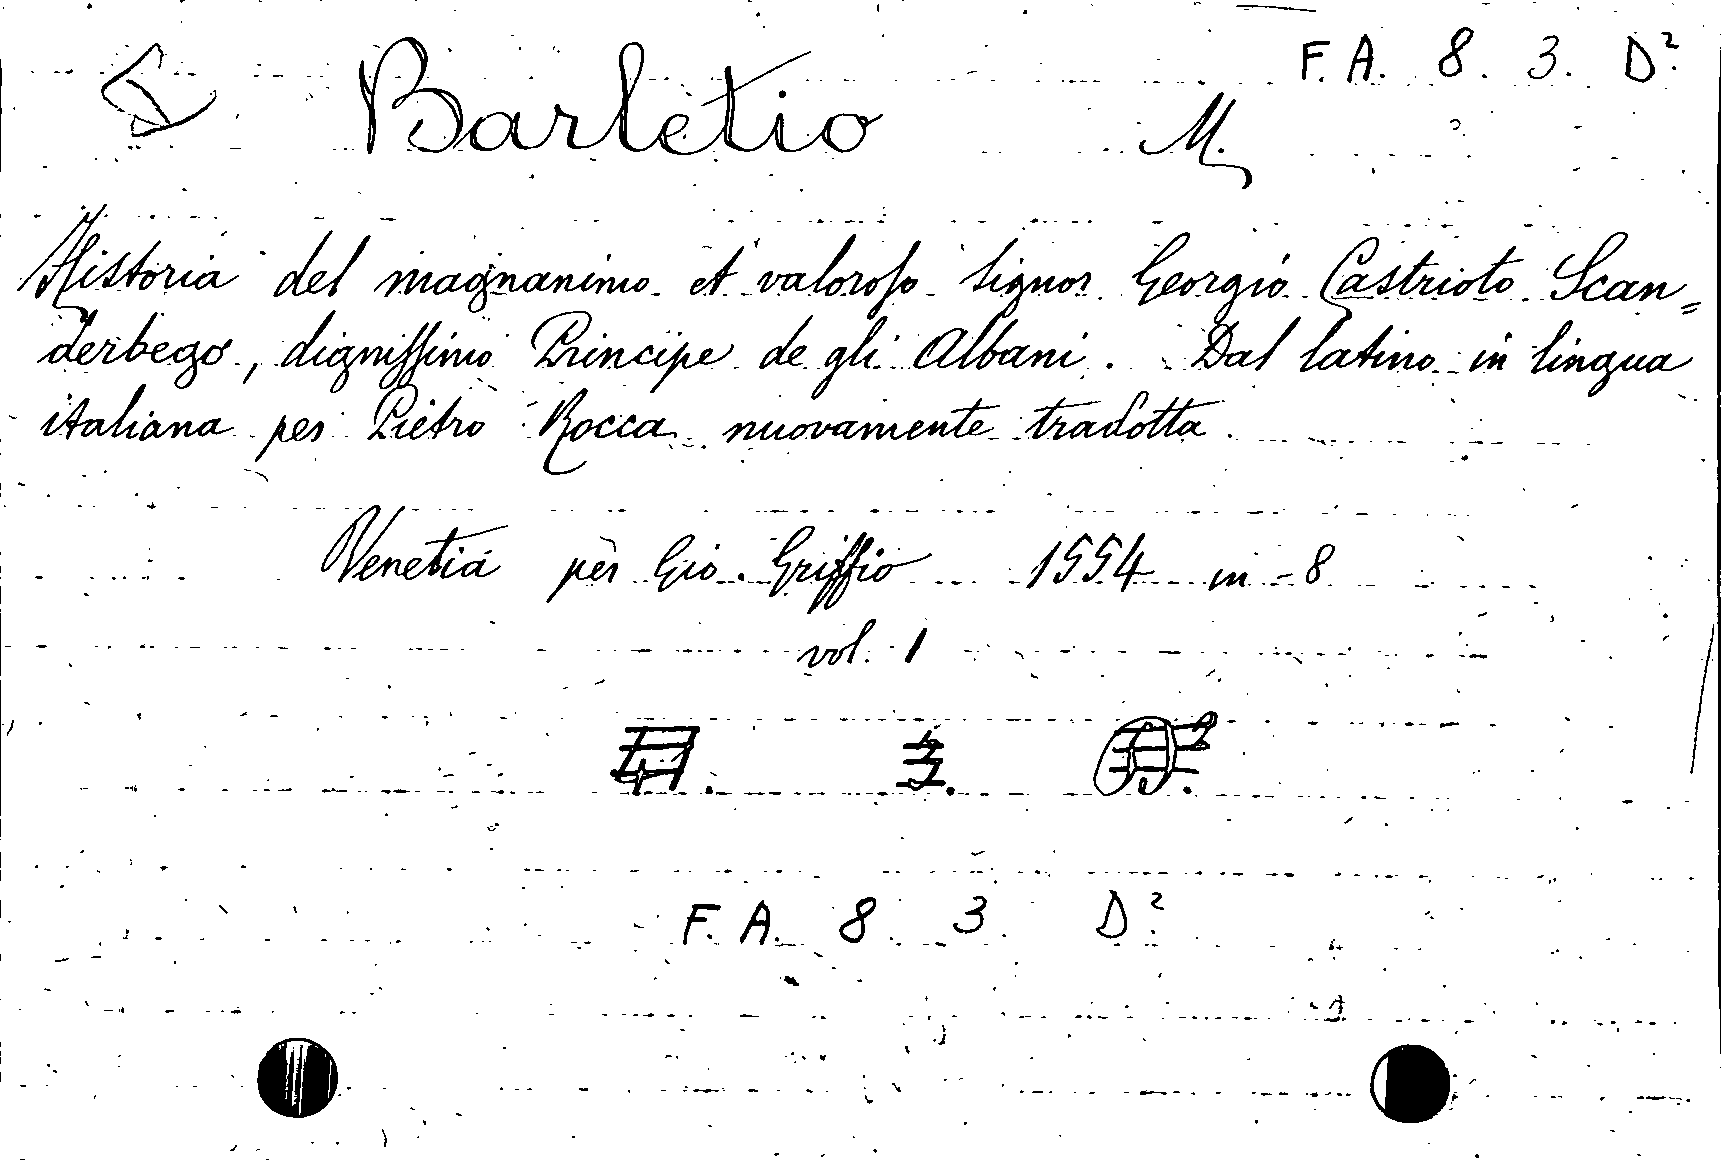 F. A. 8. 3. D².
Barletio M.
Historia del magnanimo et valoroſo signor Georgio Castrioto Scan=
derbego, digniſſimo Principe de gli Albani. Dal latino in lingua
italiana per Pietro Rocca nuovamente tradotta
Venetia per Gio. Griffio 1554 in-8
vol. 1
F. A. 8. 3. D².